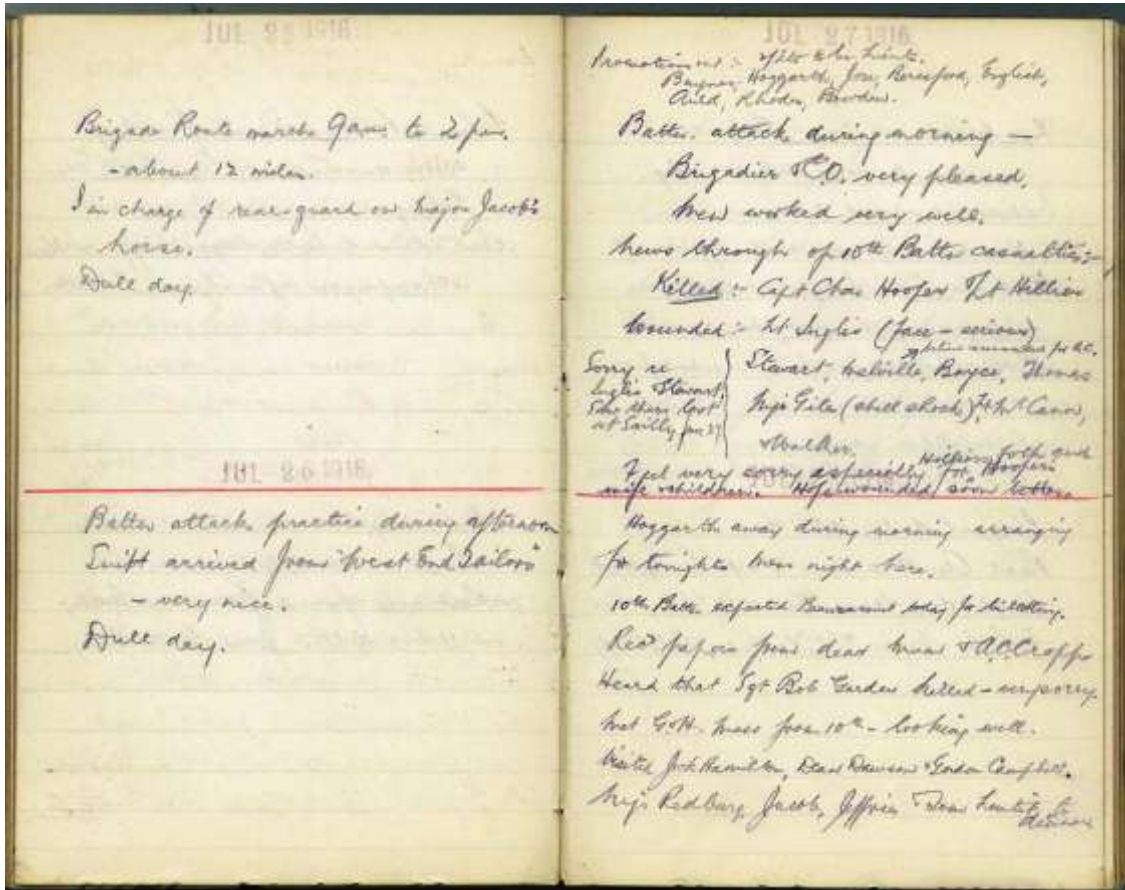 JUL 25 1916.
Brigade Route march 9am to 2pm.
- about 12 miles.
I in charge of rear-guard on Major Jacob's
horse.
Dull day.
JUL 26 1916.
Battn attack practice during afternoon
Swift arrived from "West End Tailors"
- very nice.
Dull day.
JUL 27 1916.
Promotions out :- 2/Lts to be Lieuts.
Haggarth, Jose, Beresford, English,
Auld, Rhodes, Bowden.
Battn. attack during morning -
Brigadier & C.O. very pleased.
Men worked very well.
News through of 10th Battn casualties:-
Killed :- Capt Chas Hooper Lt Hillier
Wounded :- Lt Inglis (face - serious)
Stewart, Melville, Boyce, Thomas
Sorry re
Inglis Stewart.
at Sailly
Major Giles (shell shock) Lt McCann,
& Walker.
Feel very sorry especially for Hooper's
Hillier's folk and
wife & children. Hope wounded soon better.
Haggarth away during morning arranging
for tonights Mess night here.
10th Battn expected today for billeting.
Recd papers from dear Mum & A.C. Cropp
Heard that Sgt Bob Garden killed - very sorry.
Met from 10th - looking well.
Visited Jock Hamilton, Dean Dawson & Gordon Campbell.
Majs Redburg, Jacob, Jeffries
dinner